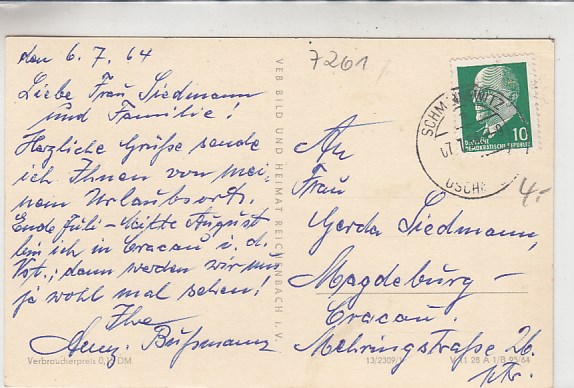 den 6.7.64
Liebe Frau Siedmann
und Familie!
Herzliche Grüße sende
ich Ihnen von mei-
nem Urlaubsort.
Ende Juli - Mitte August
bin ich in Cracau i. d.
Vst.; dann werden wir uns
ja wohl mal sehen!
Ihre
Bußmann
Verbraucherpreis 0,1 DM
VEB BILD UND HEIMAT REICHENBACH I. V.
7261
10
DEUTSCHE
DEMOKRATISCHE REPUBLIK
SCHM
07.
4,-
An
Frau
Gerda Siedmann,
Magdeburg-
Cracau.
Mehringstraße 26.
13/2309/
V 11 28 A 1/B 95/64